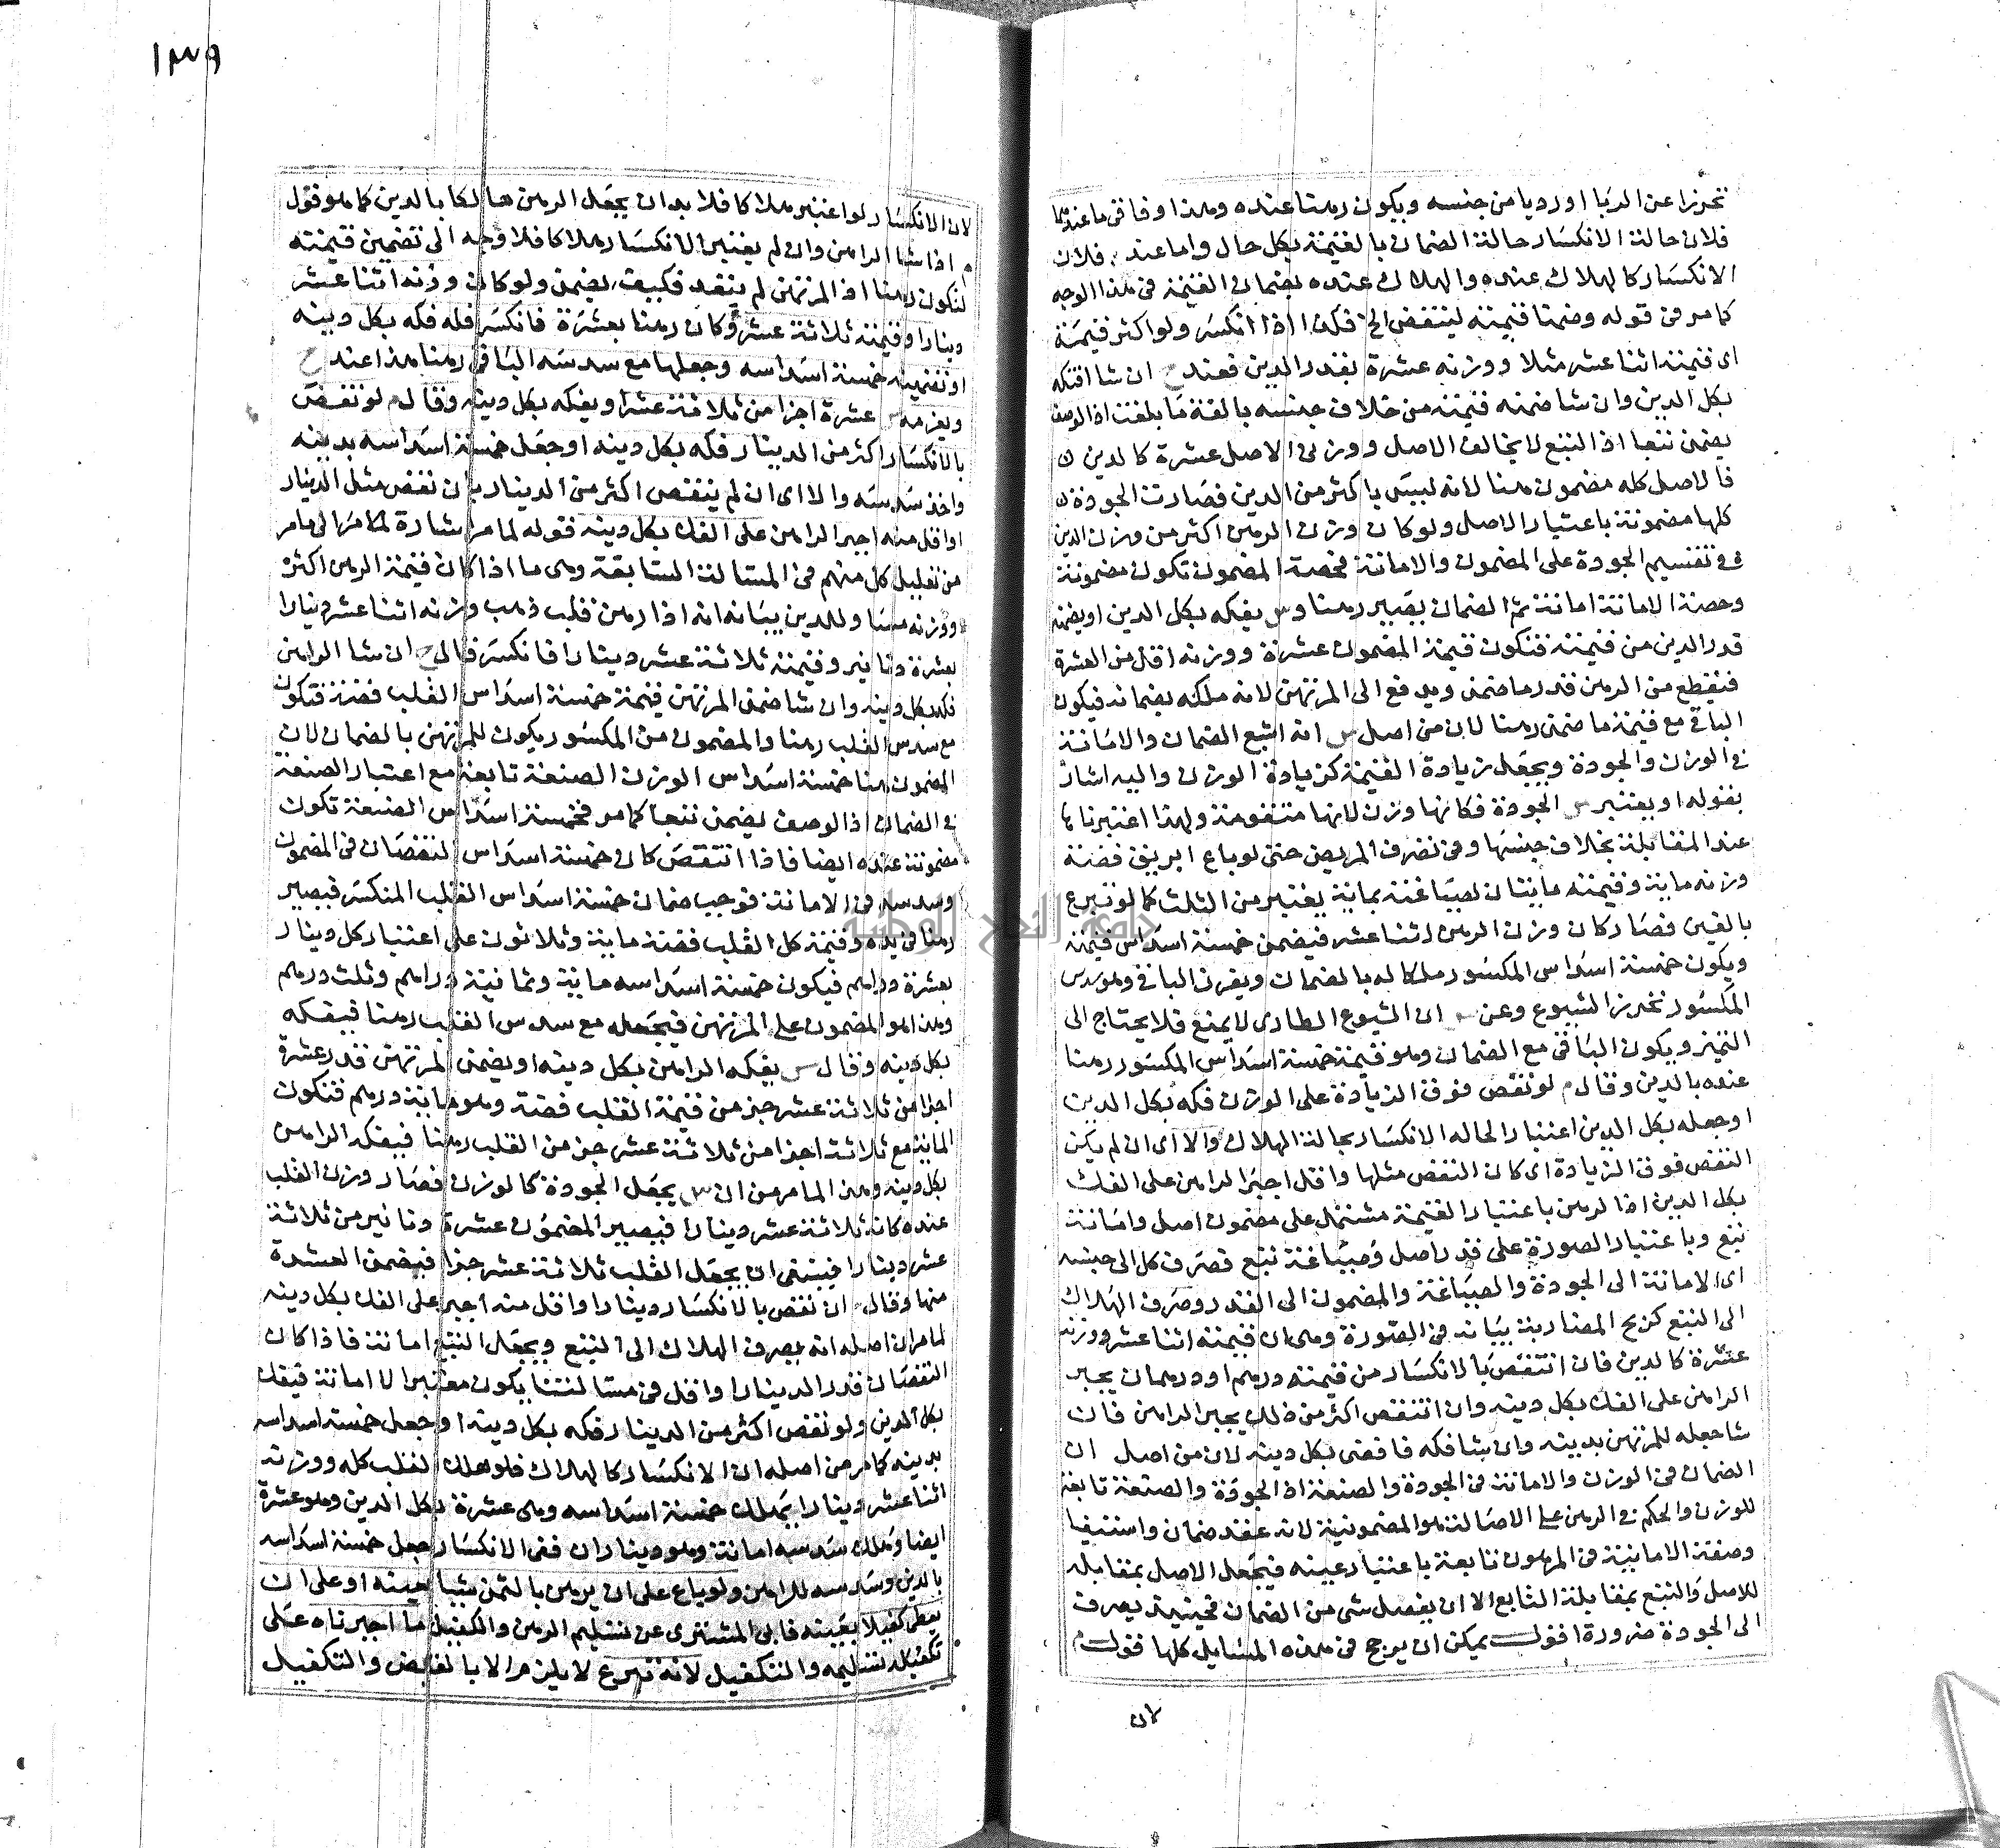 تحرزا عن الربا او رديا من جنسه ويكون رهنا عنده وهذا وفاقى ما عندهما
فلان حالة الانكسار حالة الضمان بالقيمة بكل حال واما عند فلان
الانكسار كالهلاك عنده والهلاك عنده بضمان القيمة فى هذا الوجه
كما مر فى قوله وضمنا قيمته لينتقض الخ فكذا اذا انكسر ولو اكثر قيمة
اى قيمته اثنا عشر مثلا ووزنه عشرة بقدر الدين فعند ح ان شا افتكه
بكل الدين وان شا ضمنه قيمته من خلاف جنسه بالغة ما بلغت اذ الوصف
يضمن تبعا اذ التبع لا يخالف الاصل ووزن الاصل عشرة كالدين
فالاصل كله مضمون هنا لانه ليس باكثر من الدين فصارت الجودة
كلها مضمونة باعتبار الاصل ولو كان وزن الرهن اكثر من وزن الدين
فى تقسيم الجودة على المضمون والامانة فحصة المضمون تكون مضمونة
وحصة الامانة امانة ثم الضمان يصير رهنا وس يفكه بكل الدين او يضمنه
قدر الدين من قيمته فتكون قيمة المضمون عشرة ووزنه اقل من العشرة
فيقطع من الرهن قدر ما ضمن ويدفع الى المرتهن لانه ملكه بضمانه فيكون
الباقى مع قيمة ما ضمن رهنا لان من اصل س انه اشيع الضمان والامانة
فى الوزن والجودة ويجعل زيادة القيمة كزيادة الوزن واليه اشار
بقوله او يعتبر س الجودة فكانها وزن لانها متقومة ولهذا اعتبرناها
عند المقابلة بخلاف جنسها وفى تصرف المريض حتى لو باع ابريق فضة
وزنه ماية وقيمته مايتان لصياغته بماية يعتبر من الثلث كما لو تبرع
بالعين فصار كان وزن الرهن اثنا عشر فيضمن خمسة اسداس قيمته
ويكون خمسة اسداس المكسور ملكا له بالضمان ويفرز الباقى وهو سدس
المكسور تحرز الشيوع وعن س ان الشيوع الطارى لا يمنع فلا يحتاج الى
التميز ويكون الباقى مع الضمان وهو قيمة خمسة اسداس المكسور رهنا
عنده بالدين وقال م لو نقص فوق الزيادة على الوزن فكه بكل الدين
او جعله بكل الدين اعتبارا لحاله الانكسار بحالة الهلاك والا اى ان لم يكن
النقص فوق الزيادة اى كان النقص مثلها واقل اجبر الراهن على الفك
بكل الدين اذ الرهن باعتبار القيمة مشتمل على مضمون اصل وامانة
تبع وباعتبار الصورة على قدر اصل وصياغة تبع فصرف كل الى جنسه
اى الامانة الى الجودة والصياغة والمضمون الى القدر وصرف الهلاك
الى التبع كربح المضاربة بيانه فى الصورة وهى ان قيمته اثنا عشر ووزنه
عشرة كالدين فان انتقص بالانكسار من قيمته درهم او درهمان يجبر
الراهن على الفك بكل دينه وان انتقص اكثر من ذلك يجبر الراهن فان
شا جعله للمرتهن بدينه وان شا فكه فاقضى بكل دينه لان من اصل ان
الضمان فى الوزن والامانة فى الجودة والصنعة اذ الجودة والصنعة تابعة
للوزن والحكم فى الرهن على الاصالة هو المضمونية لانه عقد ضمان واستيفا
وصفة الامانية فى المرهون تابعة باعتبار عينه فيجعل الاصل بمقابلة
للاصل والتبع بمقابلة التابع الا ان يفضل شى من الضمان فحينئذ يصرف
الى الجودة ضرورة اقول يمكن ان يرجح فى هذه المسايل كلها قول م
لان
١٣٩
لان الانكسار لو اعتبر هلاكا فلا بد ان يجعل الرهن هالكا بالدين كما هو قول
م اذا شا الراهن وان لم يعتبر الانكسار هلاكا فلا وجه الى تضمين قيمته
لتكون رهنا اذ المرتهن لم يتعد فكيف يضمن ولو كان وزنه اثنا عشر
دينارا وقيمته ثلاثة عشر وكان رهنا بعشرة فانكسر فله فكه بكل دينه
او تضمينه خمسة اسداسه وجعلها مع سدسه الباقى رهنا هذا عند ح
ويغرمه س عشرة اجزا من ثلاثة عشر او يفكه بكل دينه وقال م لو نقص
بالانكسار اكثر من الدينار فكه بكل دينه او جعل خمسة اسداسه بدينه
واخذ سدسه والا اى ان لم ينتقص اكثر من الدينار بان نقص مثل الدينار
او اقل منه اجبر الراهن على الفك بكل دينه فقوله لما مر اشارة لما مر الى ما مر
من تعليل كل منهم فى المسالة السابقة وهى ما اذا كان قيمة الرهن اكثر
ووزنه مساو للدين بيانه انه اذا رهن قلب ذهب وزنه اثنا عشر دينارا
بعشرة دنانير وقيمته ثلاثة عشر دينارا فانكسر فالى ح ان شا الراهن
فكه بكل دينه وان شا ضمن المرتهن قيمة خمسة اسداس القلب فضة فتكون
مع سدس القلب رهنا والمضمون من المكسور يكون للمرتهن بالضمان لان
المضمون هنا خمسة اسداس الوزن الصنعة تابعة مع اعتبار الصنعة
فى الضمان اذ الوصف يضمن تبعا كما مر فخمسة اسداس الصنعة تكون
مضمونة عنده ايضا فاذا انتقص كان خمسة اسداس النقصان فى المضمون
وسدسه فى الامانة فوجب ضمان خمسة اسداس القلب المنكسر فيصير
رهنا فى يده وقيمة كل القلب فضة ماية وثلاثون على اعتبار كل دينار
بعشرة دراهم فيكون خمسة اسداسه ماية وثمانية دراهم وثلث درهم
وهذا هو المضمون على المرتهن فيجعله مع سدس القلب رهنا فيفكه
بكل دينه وقال س يفكه الراهن بكل دينه او يضمن المرتهن قدر عشرة
اجزا من ثلاثة عشر جز من قيمة القلب فضة وهو ماية درهم فتكون
الماية مع ثلاثة اجزا من ثلاثة عشر جز من القلب رهنا فيفكه الراهن
بكل دينه وهذا لما مر من ان س يجعل الجودة كالوزن فصار وزن القلب
عنده كانه ثلاثة عشر دينارا فيصير المضمون عشرة دنانير من ثلاثة
عشر دينارا فينبغى ان يجعل القلب ثلاثة عشر جزا فيضمن العشرة
منها وقال م ان نقص بالانكسار دينارا واقل منه اجبر على الفك بكل دينه
لما مر ان اصله انه يصرف الهلاك الى التبع ويجعل التبع امانة فاذا كان
النقصان قدر الدينار او اقل فى مسالتنا يكون معتبرا لا امانة فيفك
بكل الدين ولو نقص اكثر من الدينار فكه بكل دينه او جعل خمسة اسداسه
بدينه كما مر من اصله ان الانكسار كالهلاك فلو هلك القلب كله ووزنه
اثنا عشر دينارا يهلك خمسة اسداسه وهى عشرة بكل الدين وهو عشرة
ايضا وهلك سدسه امانة وهو ديناران ففى الانكسار جعل خمسة اسداسه
بالدين وسدسه للراهن ولو باع على ان يرهن بالثمن شيا بعينه او على ان
يعطى كفيلا بعينه فابى المشترى عن تسليم الرهن والكفيل ما اجبرناه على
تكفيله تسليمه والتكفيل لانه تبرع لا يلزم الا بالقابض والتكفيل